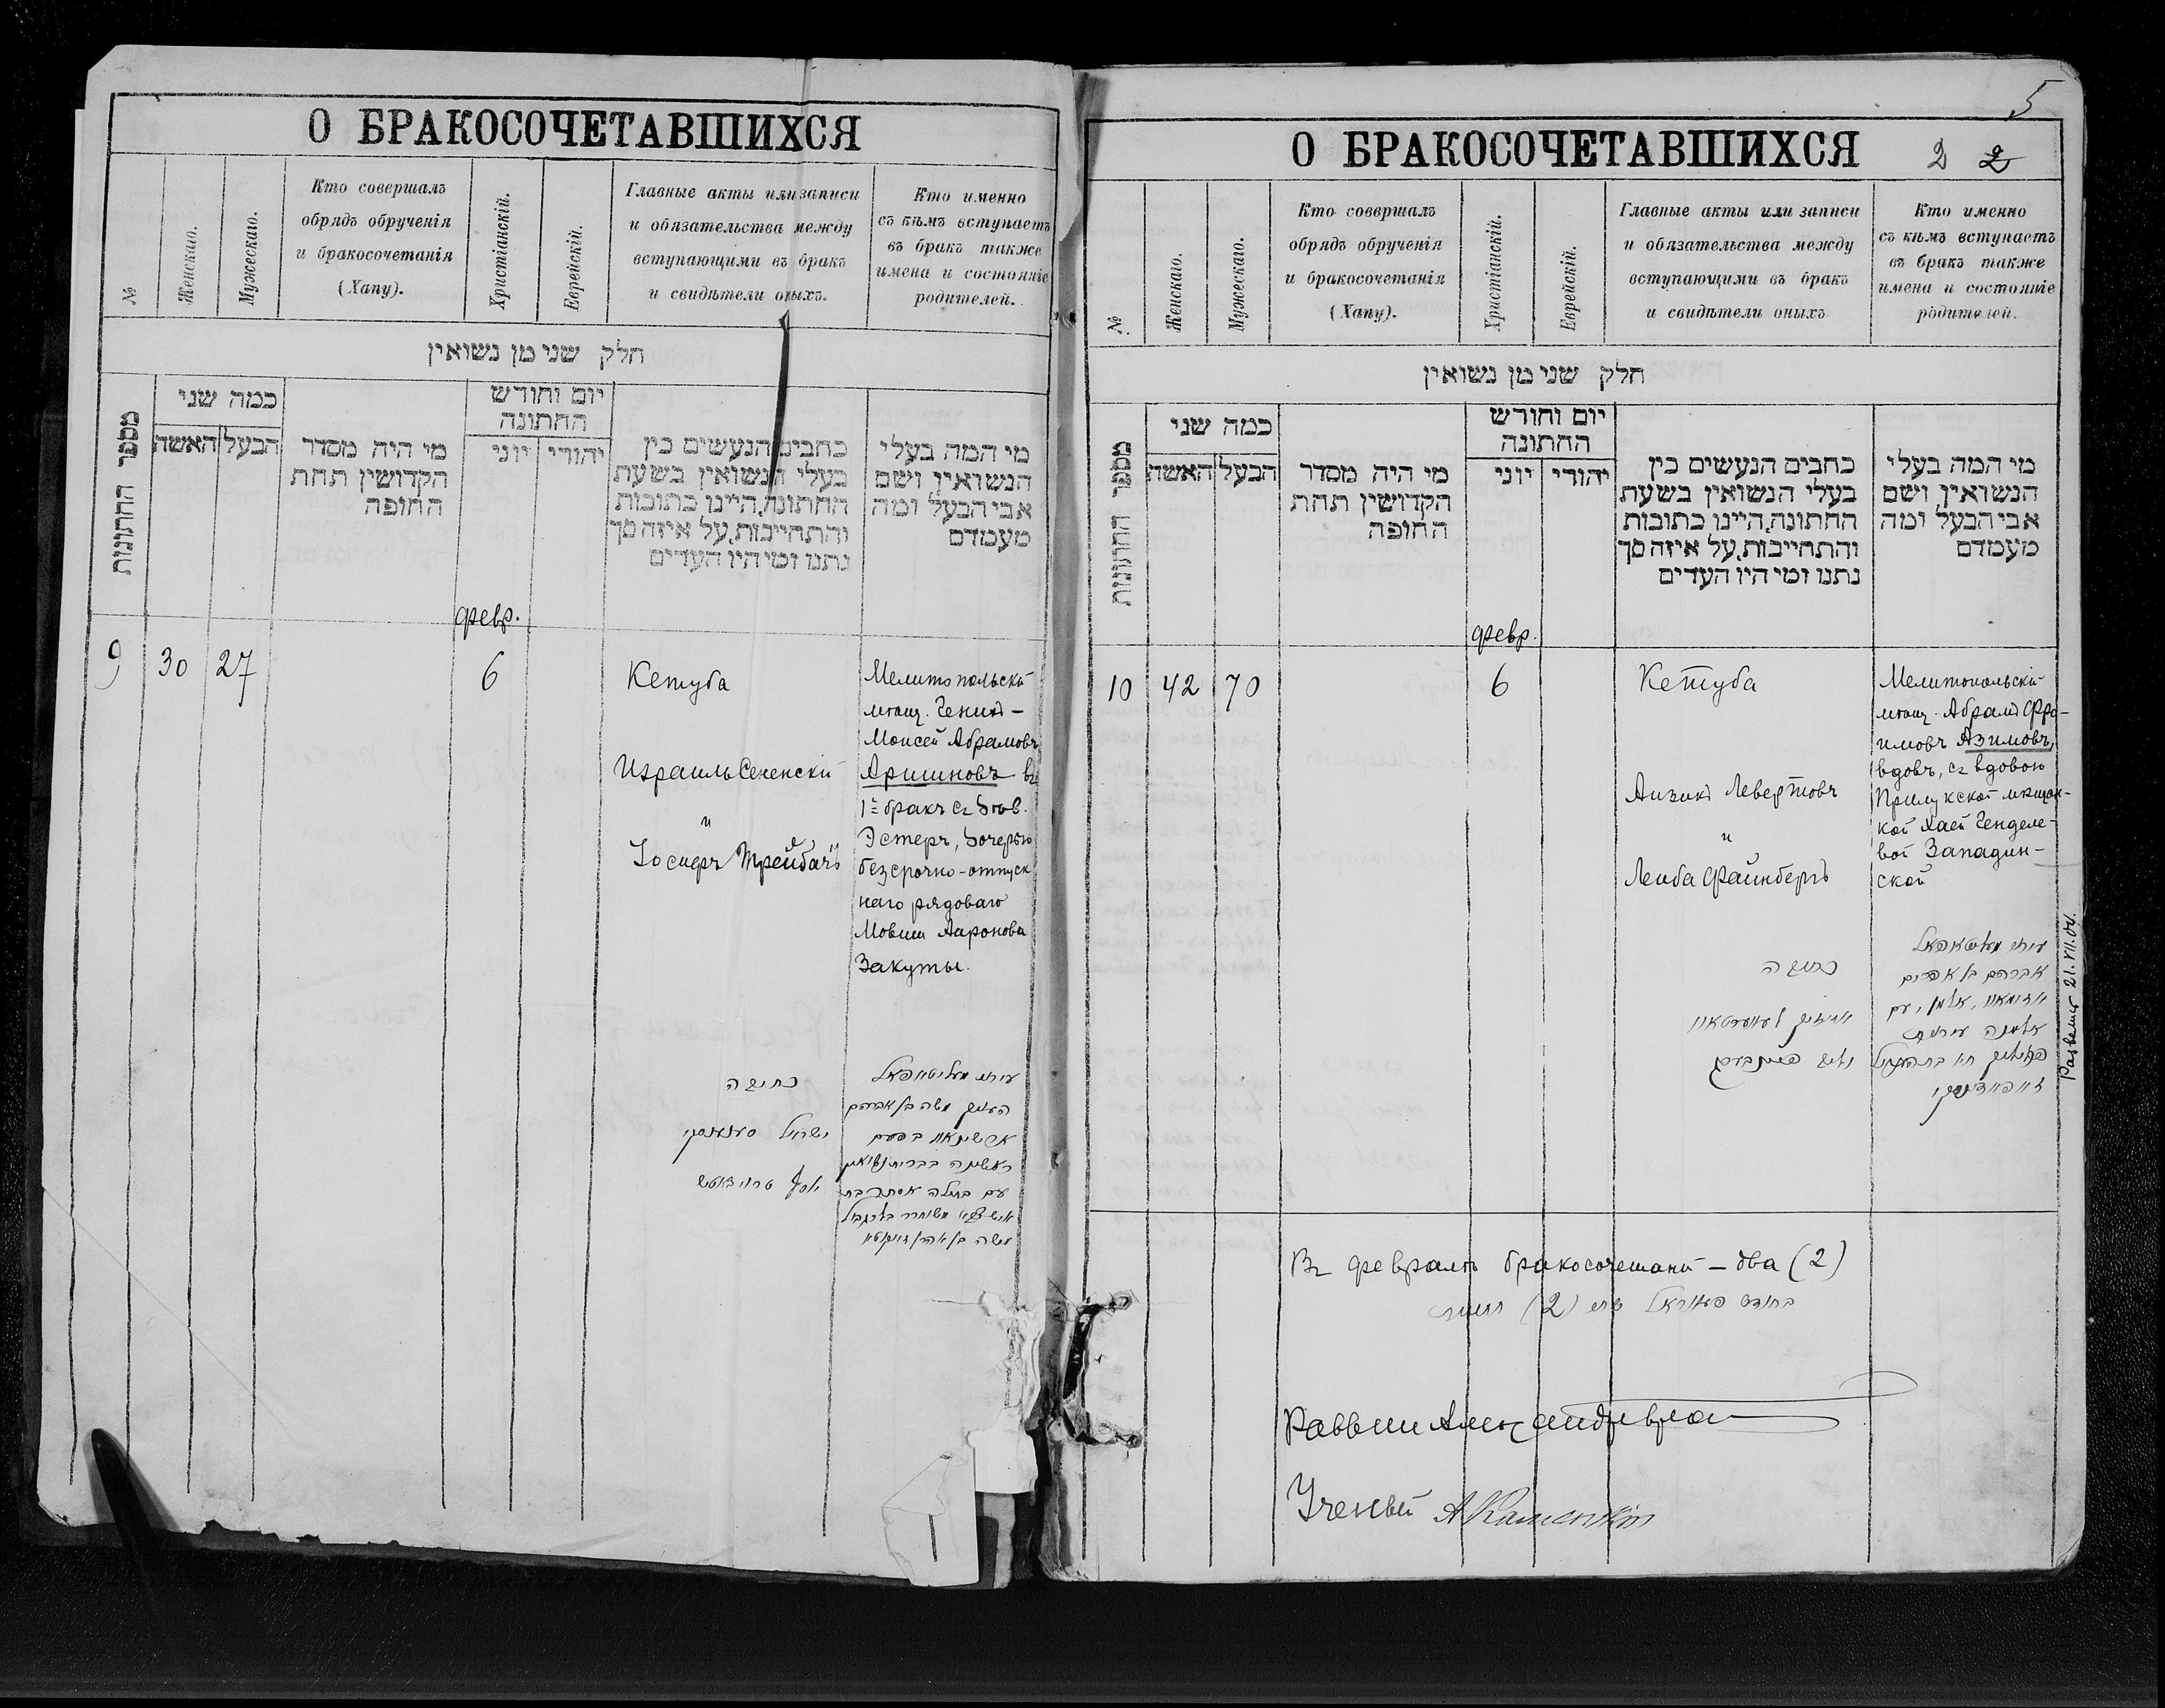 О БРАКОСОЧЕТАВШИХСЯ
№
Женскаго.
Мужескаго.
Кто совершалъ
обрядъ обрученія
и бракосочетанія
(Хапу).
Христіанскій.
Еврейскій.
Главные акты или записи
и обязательства между
вступающими въ бракъ
и свидѣтели оныхъ.
Кто именно
съ кѣмъ вступаетъ
въ бракъ также
имена и состояніе
родителей.
חלק שני מן נשואין
מספר החתונות
כמה שני
האשה
הבעל
מי היה מסדר
הקדושין תחת
החופה
יום וחודש
החתונה
יוני
יהודי
כתבים הנעשים בין
בעלי הנשואין בשעת
החתונה, היינו כתובות
והתחייבות, על איזה סך
נתנו ומי היו העדים
מי המה בעלי
הנשואין ושם
אבי הבעל ומה
מעמדם
февр.
9 30 27 6
Кетуба
Израиль Сененскій
и
Іосифъ
Мелитопольскій
мѣщ.
Моисей Абрамовъ
Аришновъ въ
1й бракъ съ дѣв.
Эстеръ, дочерью
безсрочно-отпуск
наго рядоваго
Мовши Ааронова
Закуты.
כתובה
ישראל סענענסקי
יוסף
עירוני מעליטאפאל
משה בן אברהם
אסתר בת
משה בן אהרן
5
О БРАКОСОЧЕТАВШИХСЯ
2 2
№
Женскаго.
Мужескаго.
Кто совершалъ
обрядъ обрученія
и бракосочетанія
(Хапу).
Христіанскій.
Еврейскій.
Главные акты или записи
и обязательства между
вступающими въ бракъ
и свидѣтели оныхъ
Кто именно
съ кѣмъ вступаетъ
въ бракъ также
имена и состояніе
родителей.
חלק שני מן נשואין
מספר החתונות
כמה שני
האשה
הבעל
מי היה מסדר
הקדושין תחת
החופה
יום וחודש
החתונה
יוני
יהודי
כתבים הנעשים בין
בעלי הנשואין בשעת
החתונה, היינו כתובות
והתחייבות, על איזה סך
נתנו ומי היו העדים
מי המה בעלי
הנשואין ושם
אבי הבעל ומה
מעמדם
февр.
10 42 70 6
Кетуба
Аизикъ Левертовъ
и
Лейба Файнбергъ
Мелитопольскій
мѣщ. Абрамъ Фро-
имовъ Азимовъ,
вдовъ, съ вдовою
Прилукской мѣщан-
кой Хаей Гендле-
вой Западин-
ской
כתובה
אברהם בן אפרים
אלמן, עם
אלמנה
21.VII.04.
Въ февралѣ бракосочетаній – два (2)
בחודש פעווראל שתי (2) חתונות
Раввинъ
Ученый